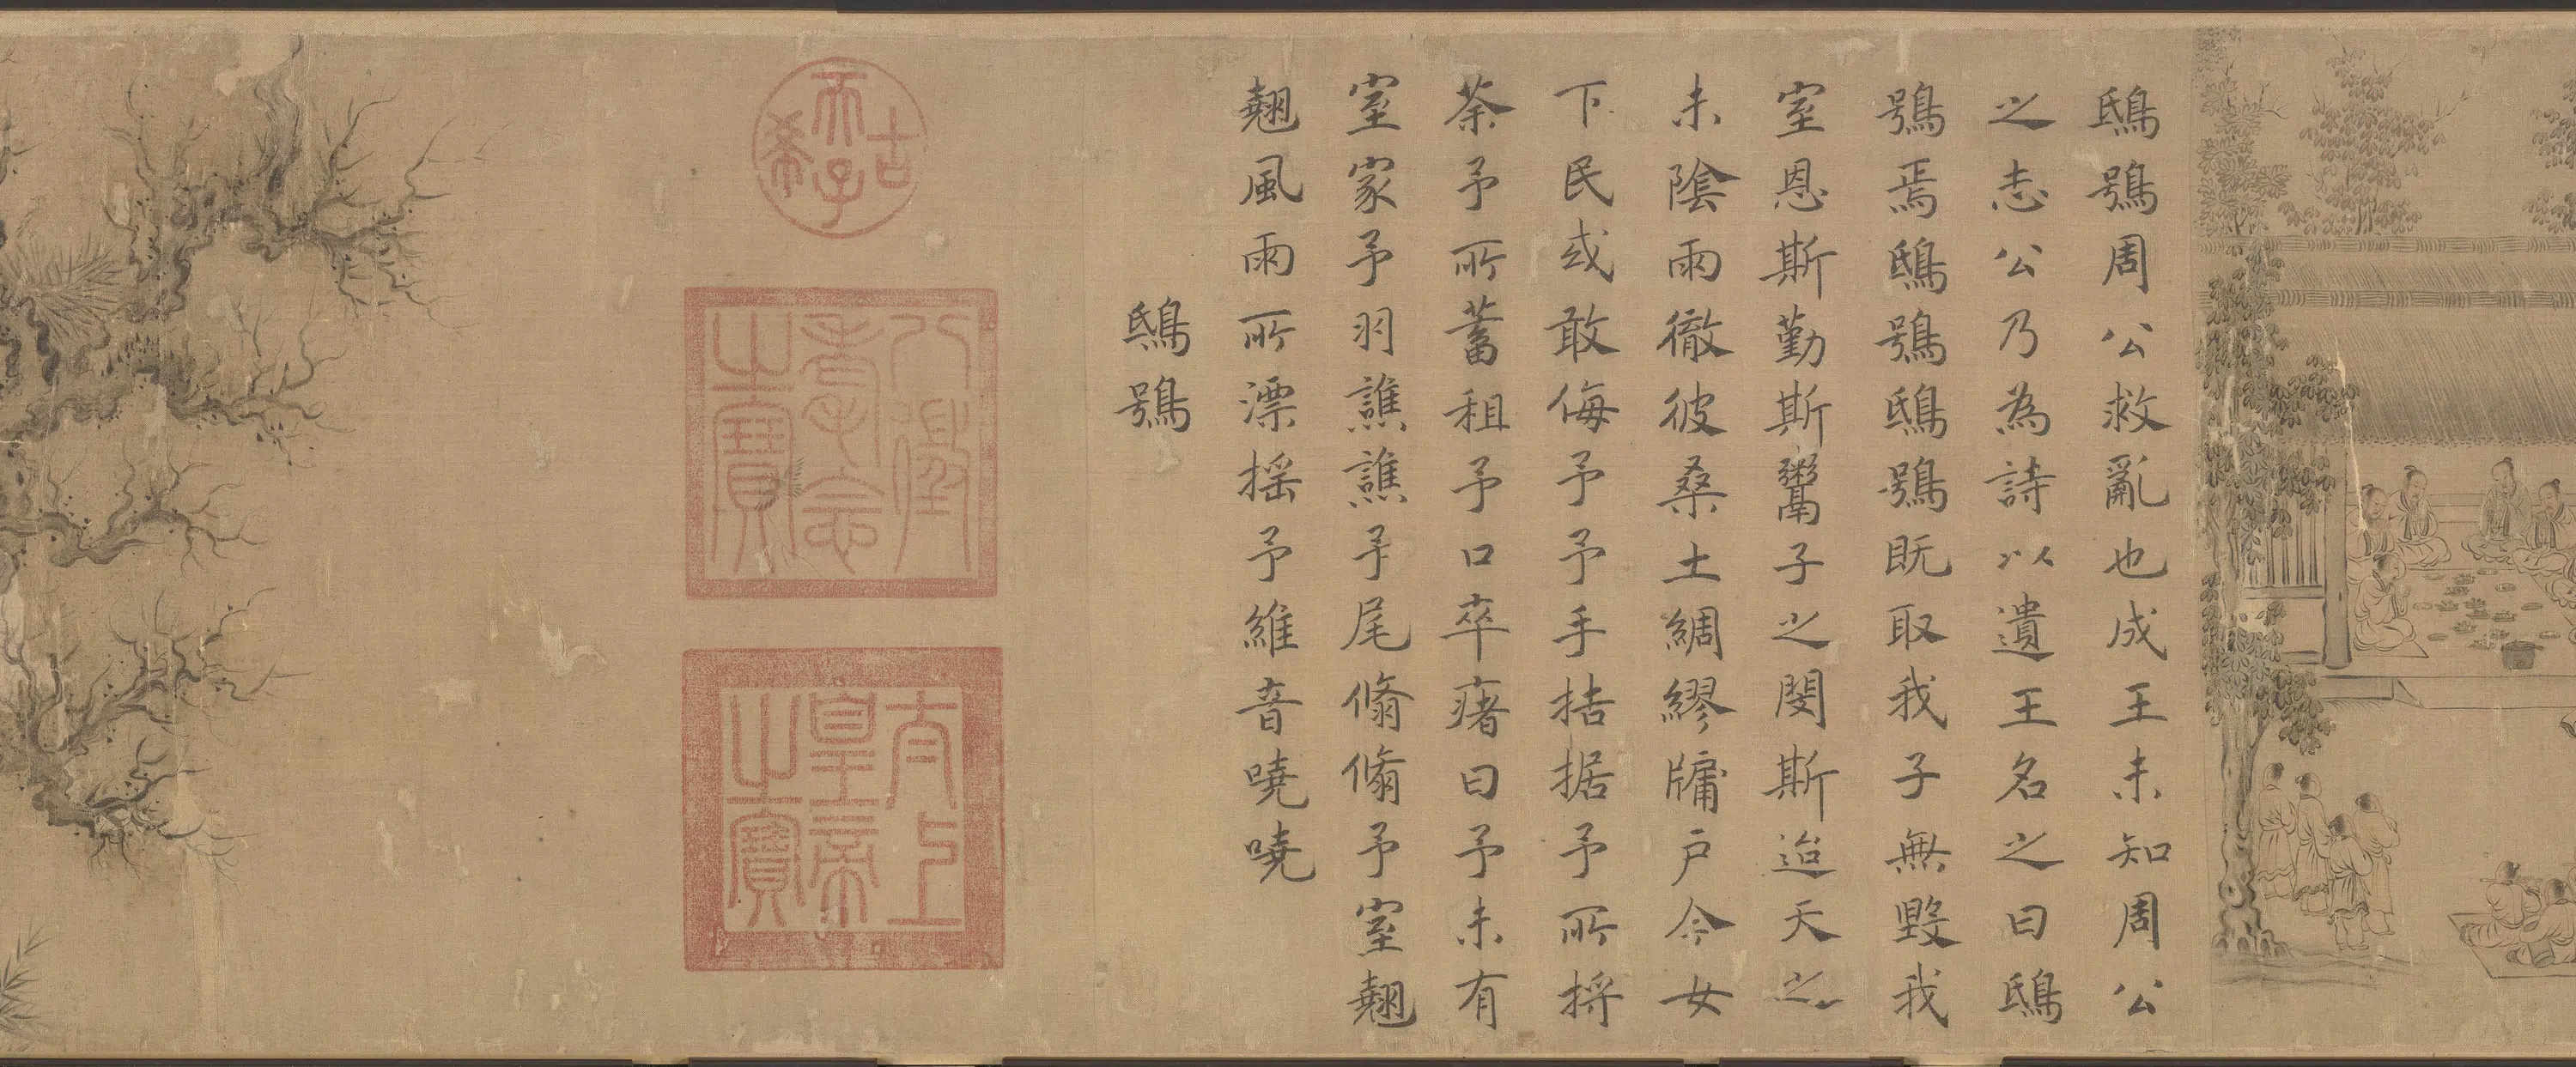 鴟鴞周公救亂也成王未知周公
之志公乃為詩以遺王名之曰鴟
鴞焉鴟鴞鴟鴞既取我子無毀我
室恩斯勤斯鬻子之閔斯迨天之
未陰雨徹彼桑土綢繆牖戶今女
下民或敢侮予予手拮据予所捋
荼予所蓄租予口卒瘏曰予未有
室家予羽譙譙予尾翛翛予室翹
翹風雨所漂搖予維音嘵嘵
鴟鴞
古希天子
八徵耄念之寶
太上皇帝之寶